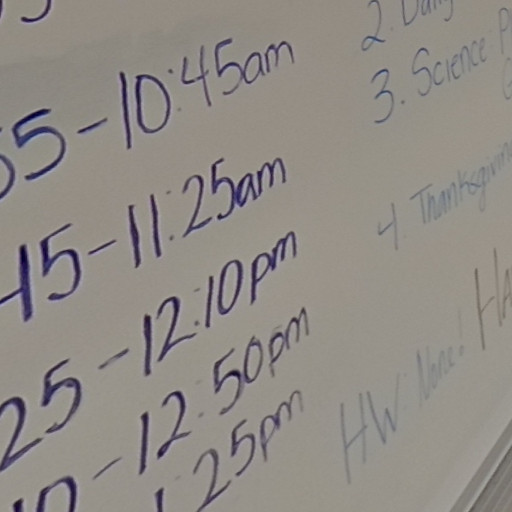 55-10:45am
45-11:25am
25-12:10pm
10-12:50pm
1:25pm
2. Daily
3. Science
4. Thanksgiving
HW: None!